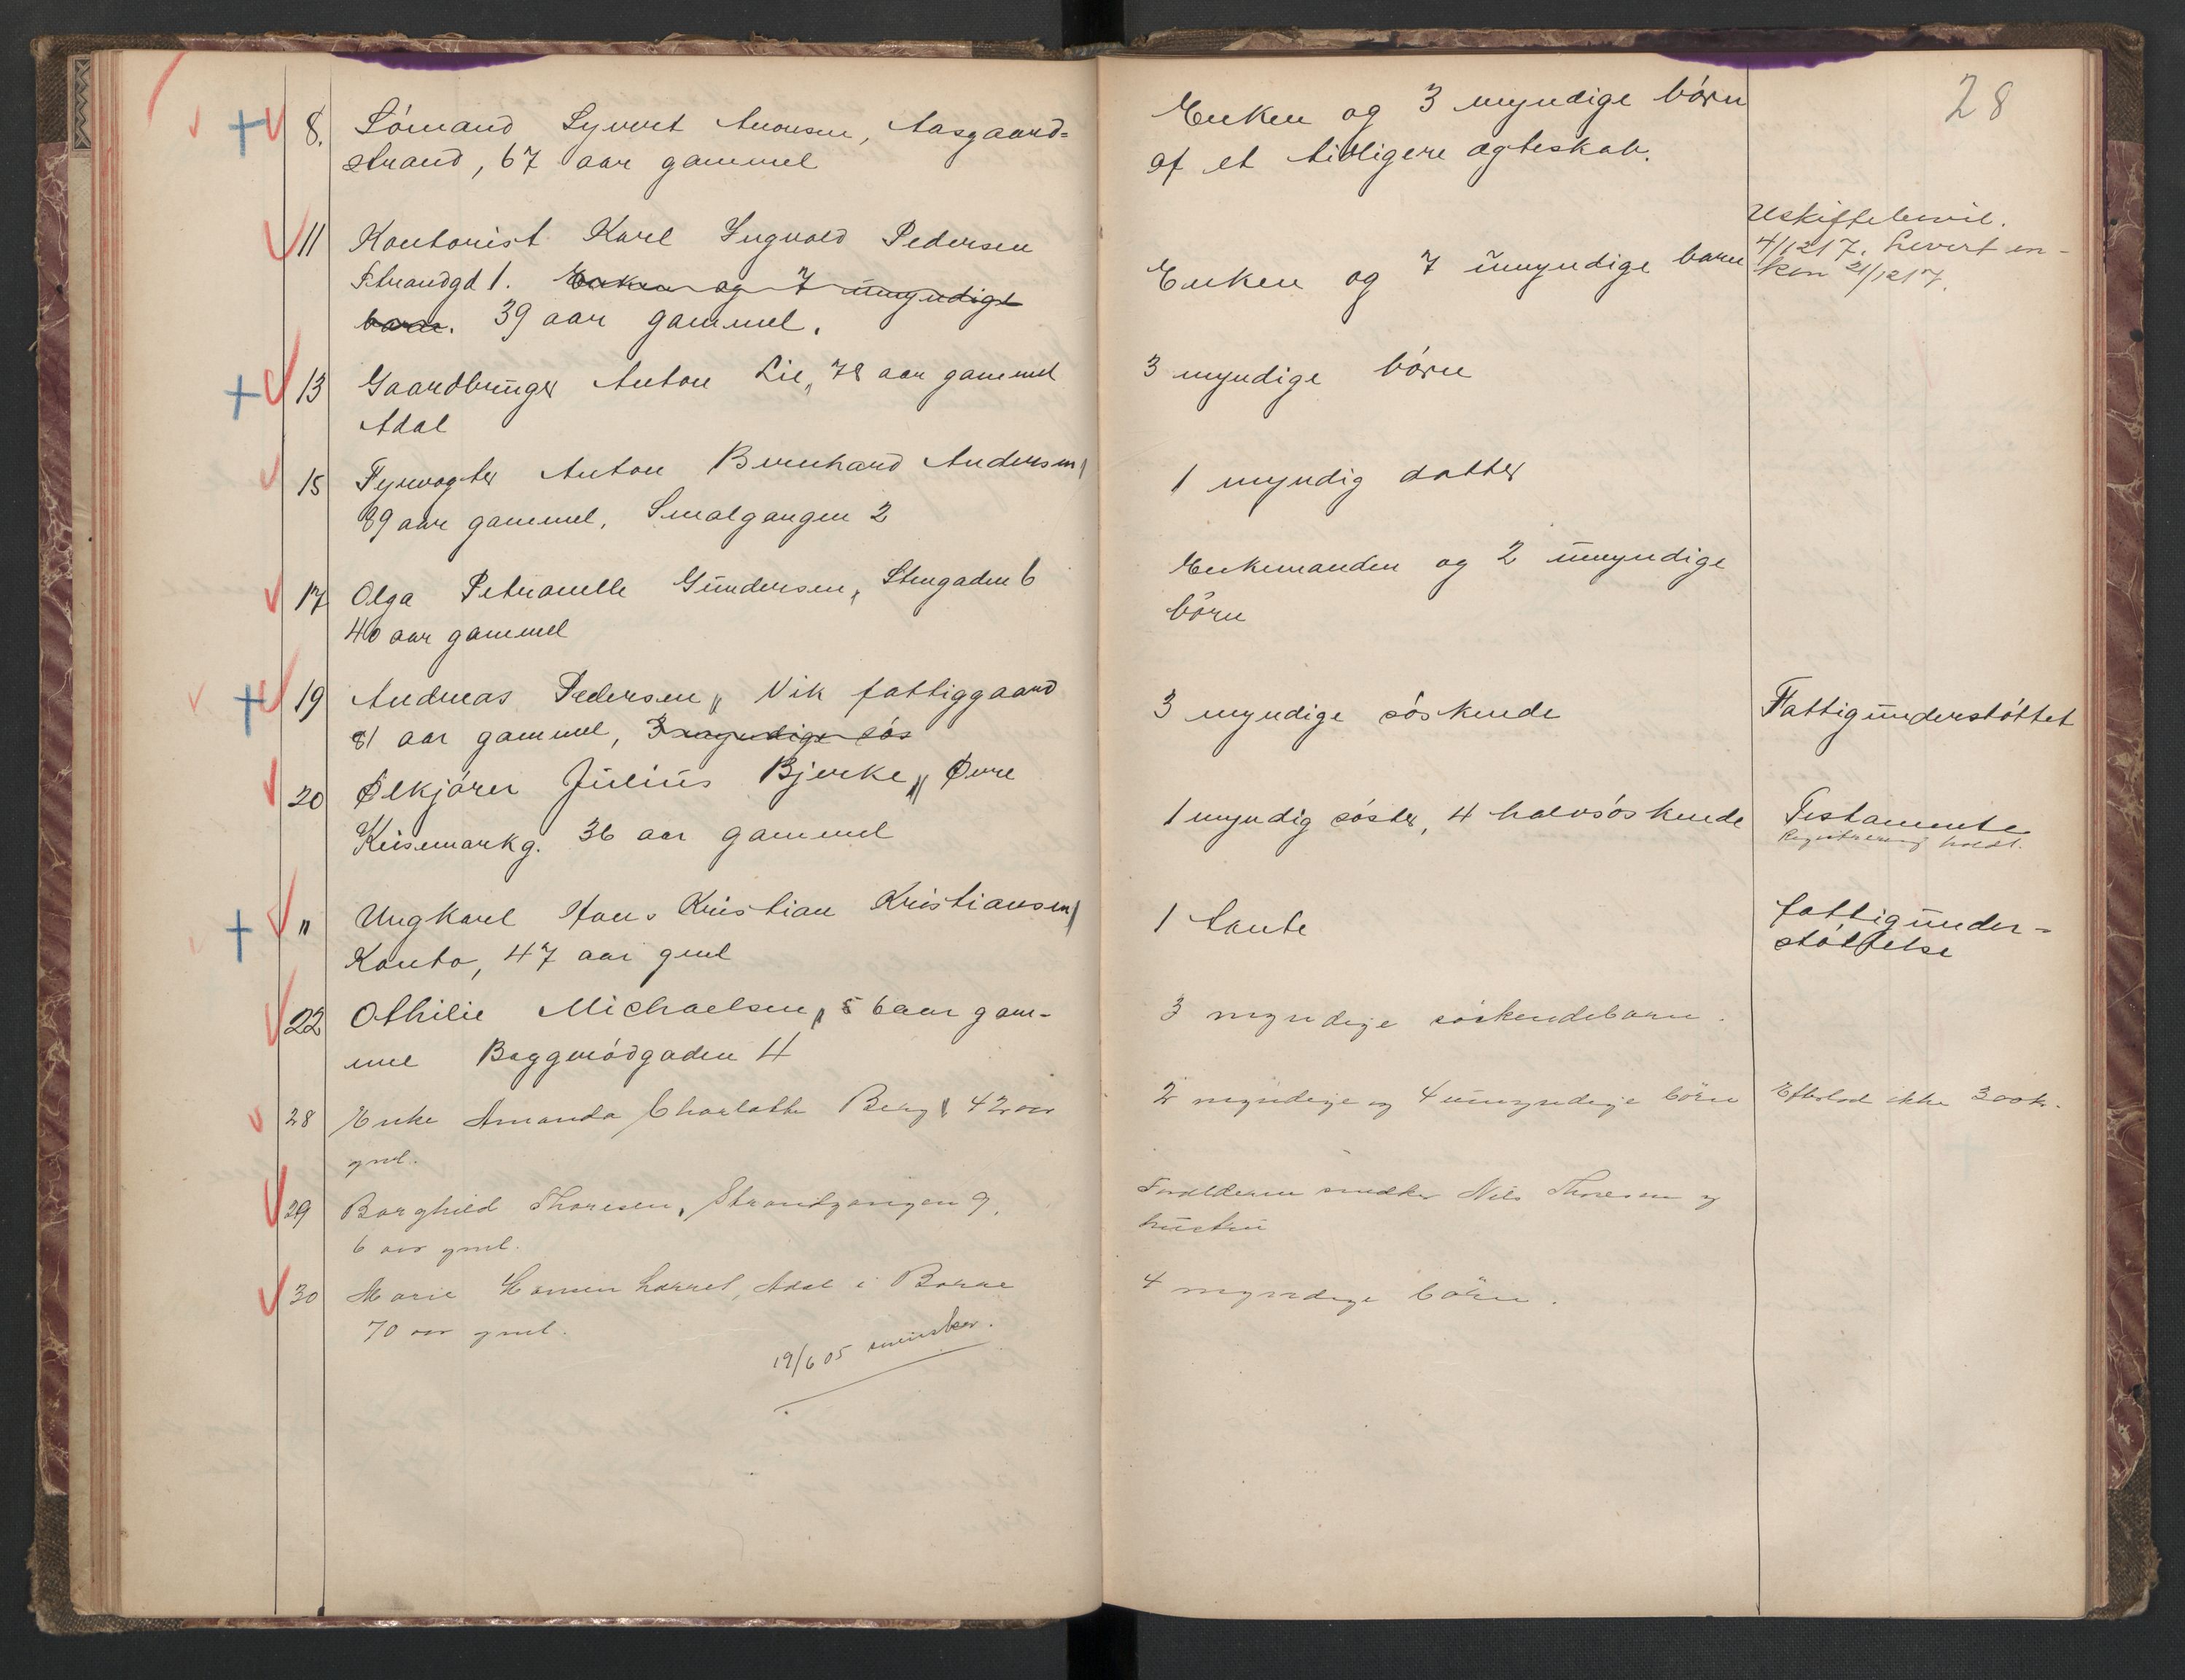 28
8. Sömand Syvert Aronsen, Aasgaard=
strand, 67 aar gammel
Enken og 3 myndige börn
af et tidligere ægteskab.
11 Kontorist Karl Ingvald Pedersen
Strandgd 1. Enken og 7 umyndige
barn. 39 aar gammel.
Enken og 7 umyndige barn
Uskiftebevil.
4/12 17. Levert en-
ken 21/12 17.
13 Gaardbruger Anton Lie, 78 aar gammel
Adal
3 myndige börn
15 Fyrvogter Anton Bernhard Andersen
89 aar gammel, Smalgangen 2
1 myndig datter
17 Olga Petronelle Gundersen, Stengaden 6
40 aar gammel
Enkemanden og 2 umyndige
börn
19 Andreas Pedersen, Vik fattiggaard
81 aar gammel, 3 myndige sös
3 myndige söskende
Fattigunderstöttet
20 Ølkjörer Julius Bjerke, Øvre
Keisemarkg. 36 aar gammel
1 myndig söster, 4 halvsöskende
Testamente
Registrering holdt.
" Ungkarl Hans Kristian Kristiansen
Konto, 47 aar gml
1 tante
fattigunder=
støttelse
22 Othilie Michaelsen, 56 aar gam-
mel Baggerödgaden 4
3 myndige söskendebarn.
28 Enke Amanda Charlotte Berg, 42 aar
gml.
2 myndige og 4 umyndige börn
Efterlod ikke 300 kr.
29 Borghild Thoresen, Strandgangen 9,
6 aar gml.
Forældrene snedker Nils Thoresen og
hustru
30 Marie Larsen, Adal i Borre
70 aar gml.
4 myndige börn.
19/6 05